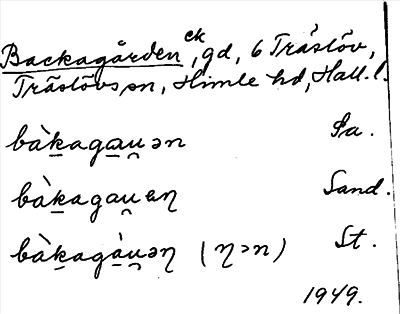 Backagården ck, gd, 6 Träslöv,
Träslövs sn, Himle hd, Hall. l.
bàk̲aga̲u̯ən Sa.
bàk̲agau̯eη Sand.
bàk̲agàu̯əη (η>n) St.
1949.